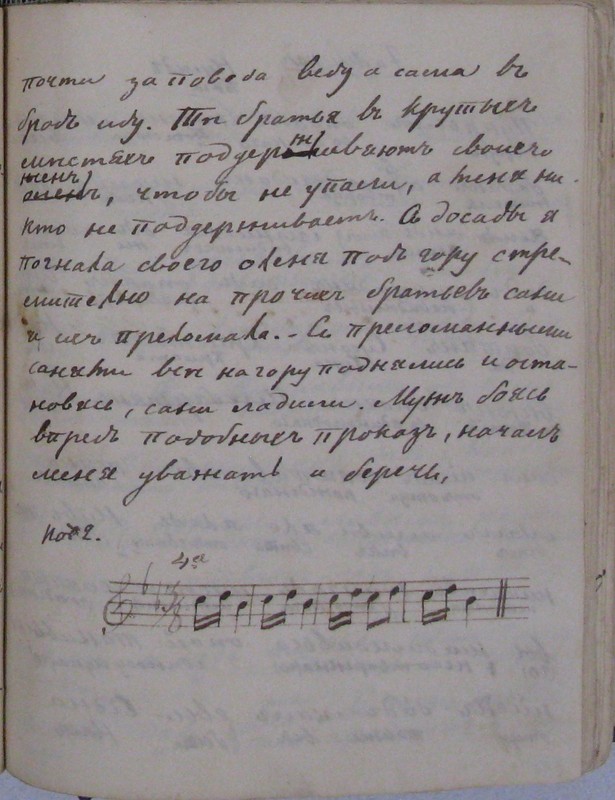 почти за повода веду а сама въ
бродъ иду. Тѣ братья въ крутыхъ
мѣстахъ поддерживаютъ своихъ
женъ, чтобы не упасли, а меня ни-
кто не поддерживаетъ. Съ досады я
погнала своего оленя подъ гору стре-
мително на прочихъ братьевъ сани
и ихъ преломала. - Съ преломанными
санями всѣ на гору поднялись и оста-
новясь, сани ладили. Мужъ боясь
впредь подобныхъ проказъ, началъ
меня уважать и беречь,
№ 2.
4а